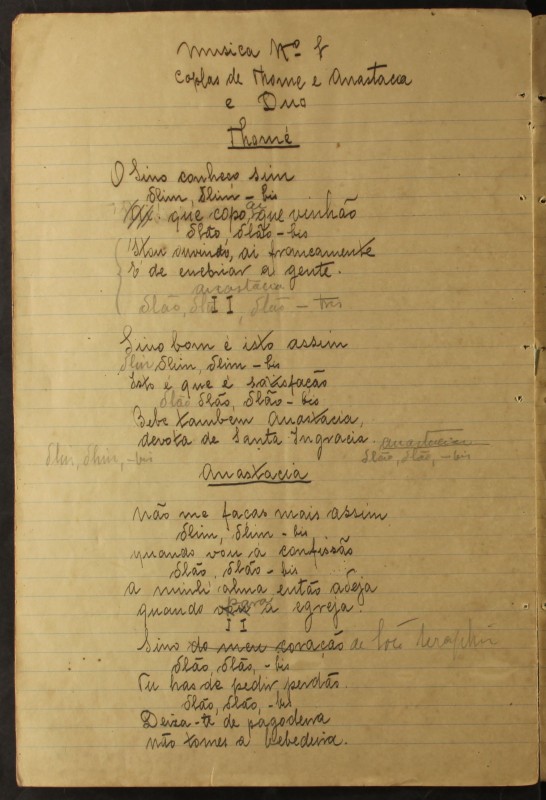 Musica Nº
Coplas de Thomé e Anastacia
e Duo
Thomé
O Sino conheço sim
dlim, dlim - bis
que copo, ai que vinhão
dlão, dlão - bis
'stou ouvindo, ai francamente
É de enebriar a gente.
anastacia
II
dlão, dlão, dlão - tres
Sino bom é isto assim
dlin dlim, dlim - bis
Isto é que é satisfação
dlão dlão, dlão - bis
Bebe tambem Anastacia,
devota de Santa Ingracia. anastacia
dlin, dlin, - bis dlão, dlão, - bis
Anastacia
Não me facas mais assim
dlim, dlim - bis
quando vou á confissão
dlão, dlão - bis
a minh' alma então adeja
quando para a egreja.
II
Sino do meu coração de
dlão, dlão, - bis
Tu has de pedir perdão.
dlão, dlão, - bis
Deixa-te de pagodeira
não tomes a bebedeira.